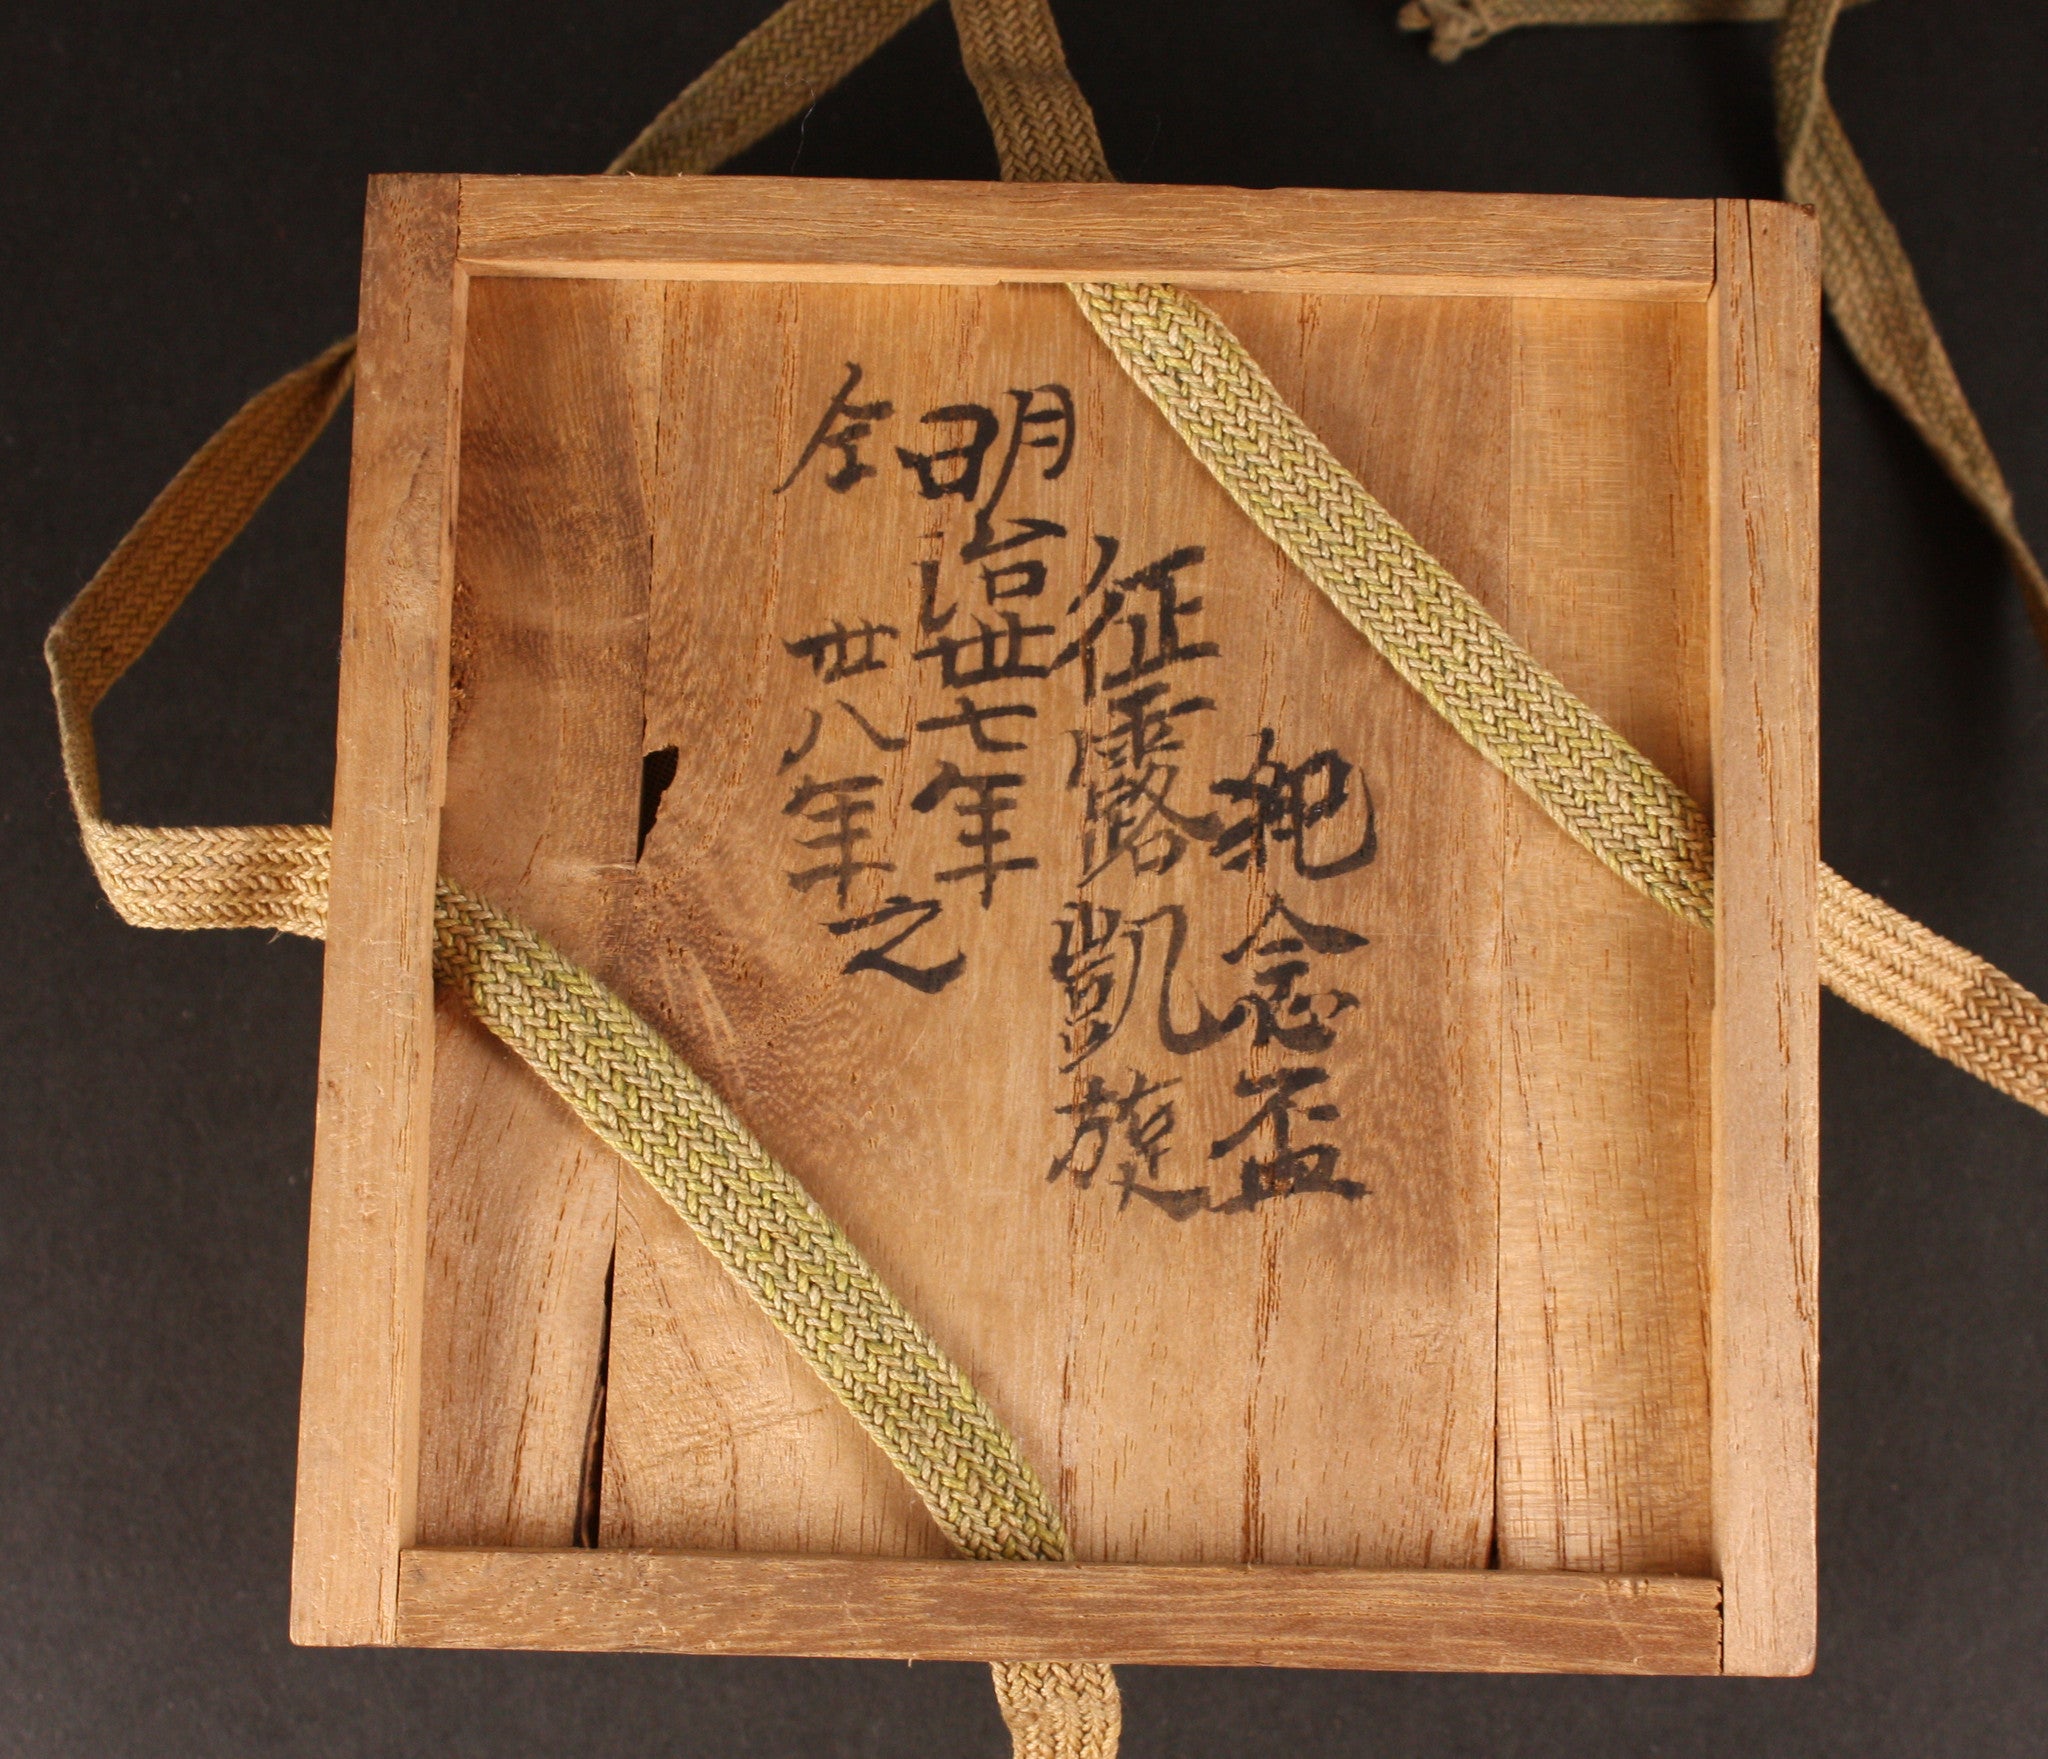 明治丗七年
仝丗八年之
征露凱旋
紀念盃